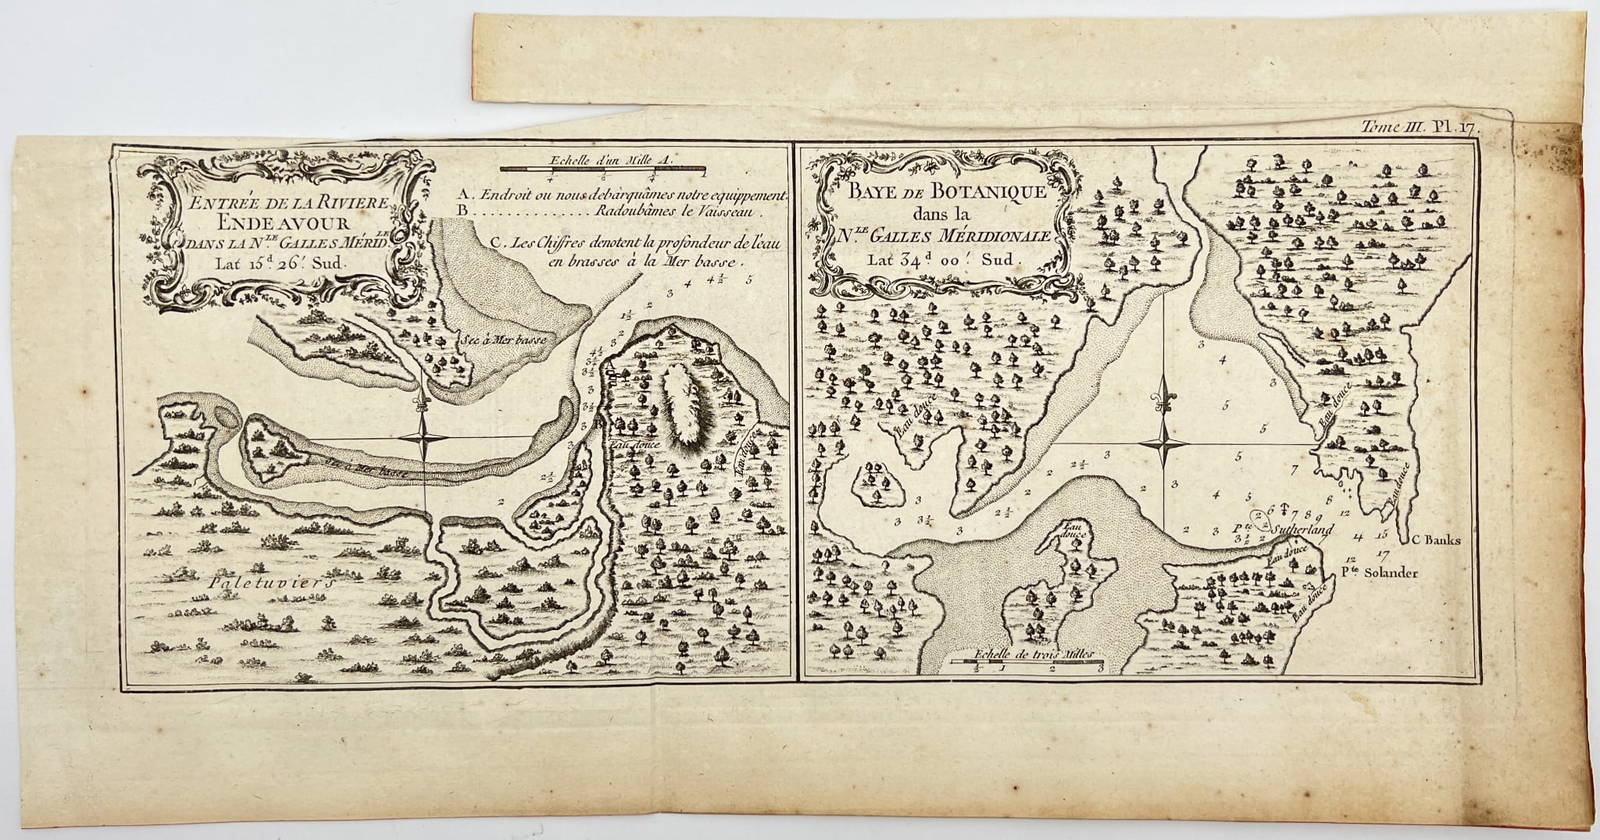 Tome III. Pl. 17.
ENTRÉE DE LA RIVIERE
ENDEAVOUR
DANS LA N.LE GALLES MÉRID.LE
Lat 15.d 26.' Sud.
Echelle d'un Mille A.
A. Endroit ou nous debarquâmes notre equippement.
B.............. Radoubâmes le Vaisseau.
C. Les Chiffres denotent la profondeur de l'eau
en brasses à la Mer basse.
Sec à Mer basse
Sec à Mer basse
Eau douce
Eau douce
Paletuviers
BAYE DE BOTANIQUE
dans la
N.LE GALLES MÉRIDIONALE
Lat 34.d 00.' Sud.
Eau douce
Eau douce
Eau douce
Eau
douce
P.te
Sutherland
Eau douce
C Banks
P.te Solander
Eau douce
Echelle de trois Milles
1 2 3